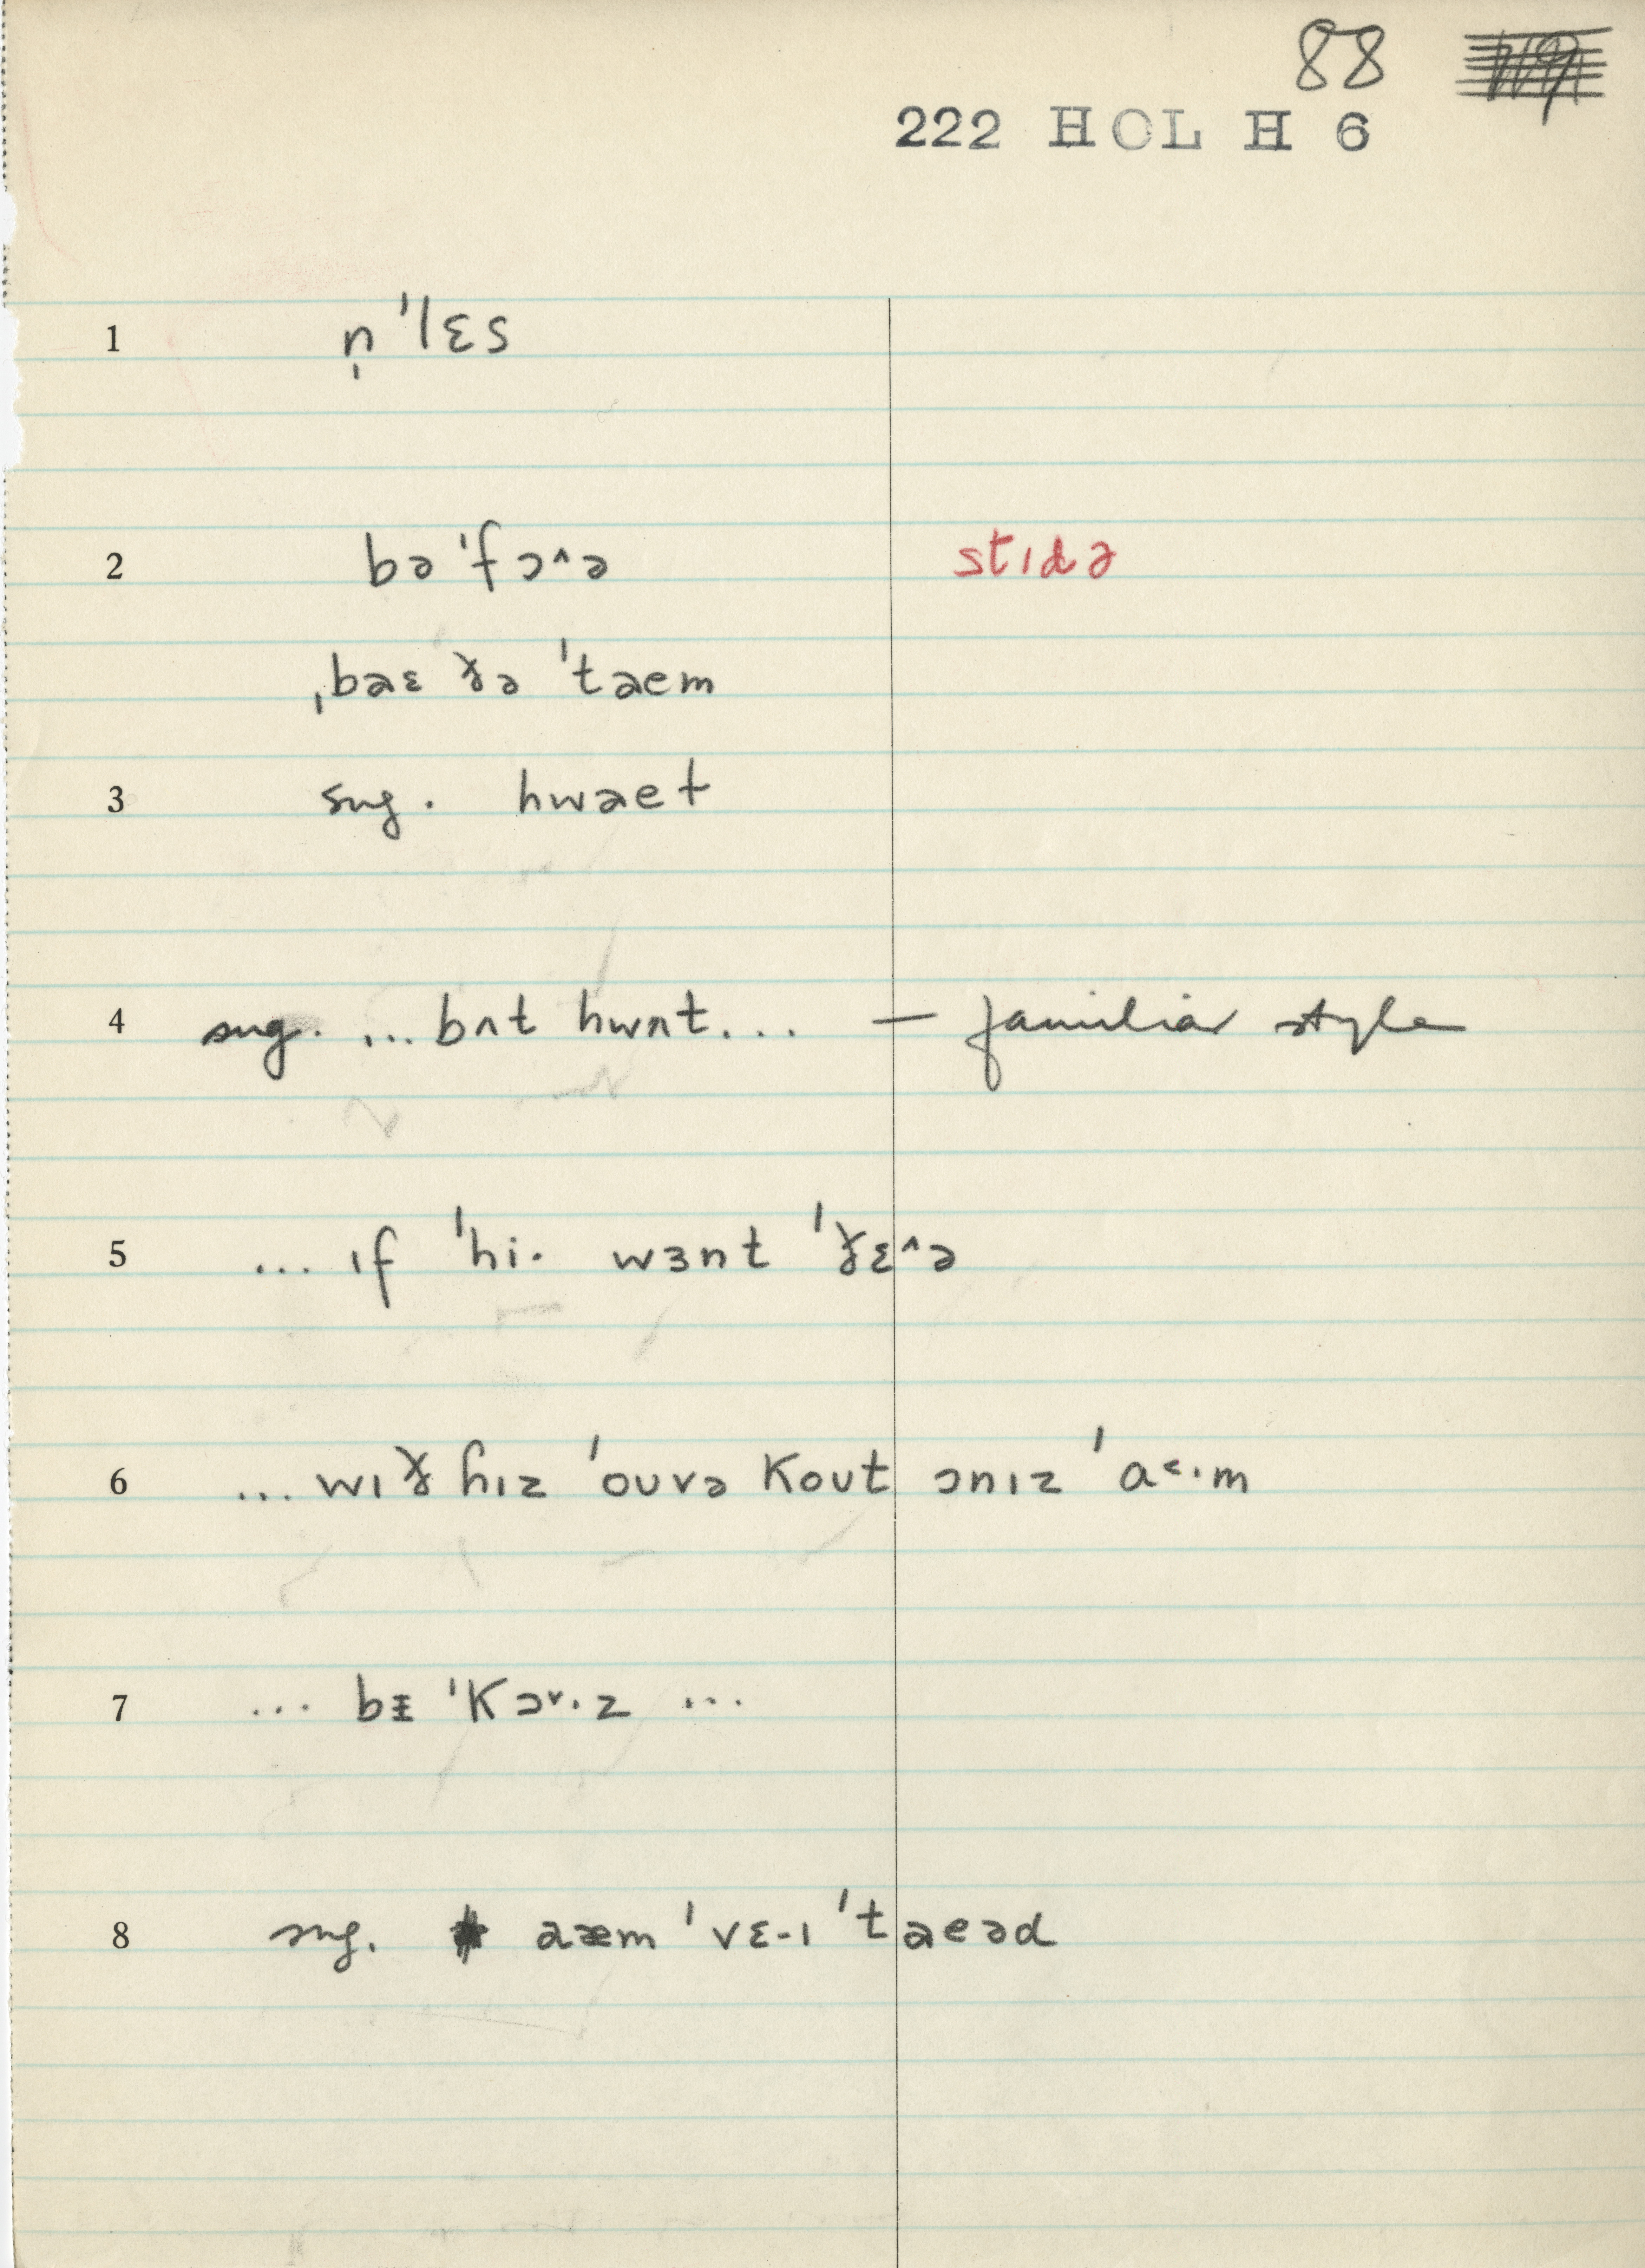 88
222 HOL H 6
1 n̩ ˈlɛs
2 bə ˈfɔ^ə stɪdə
ˌbaɛ ðə ˈtaem
3 sug. hwaet
4 sug. ... bʌt hwʌt ... — familiar style
5 ... ɪf ˈhi· wɜnt ˈðɛ^ə
6 ... wɪð hɪz ˈoʊvə kout ɔnɪz ˈa<·m
7 ... bᵻ ˈkɔv·z ...
8 sug. aæm ˈvɛ-ɪ ˈtaeəd